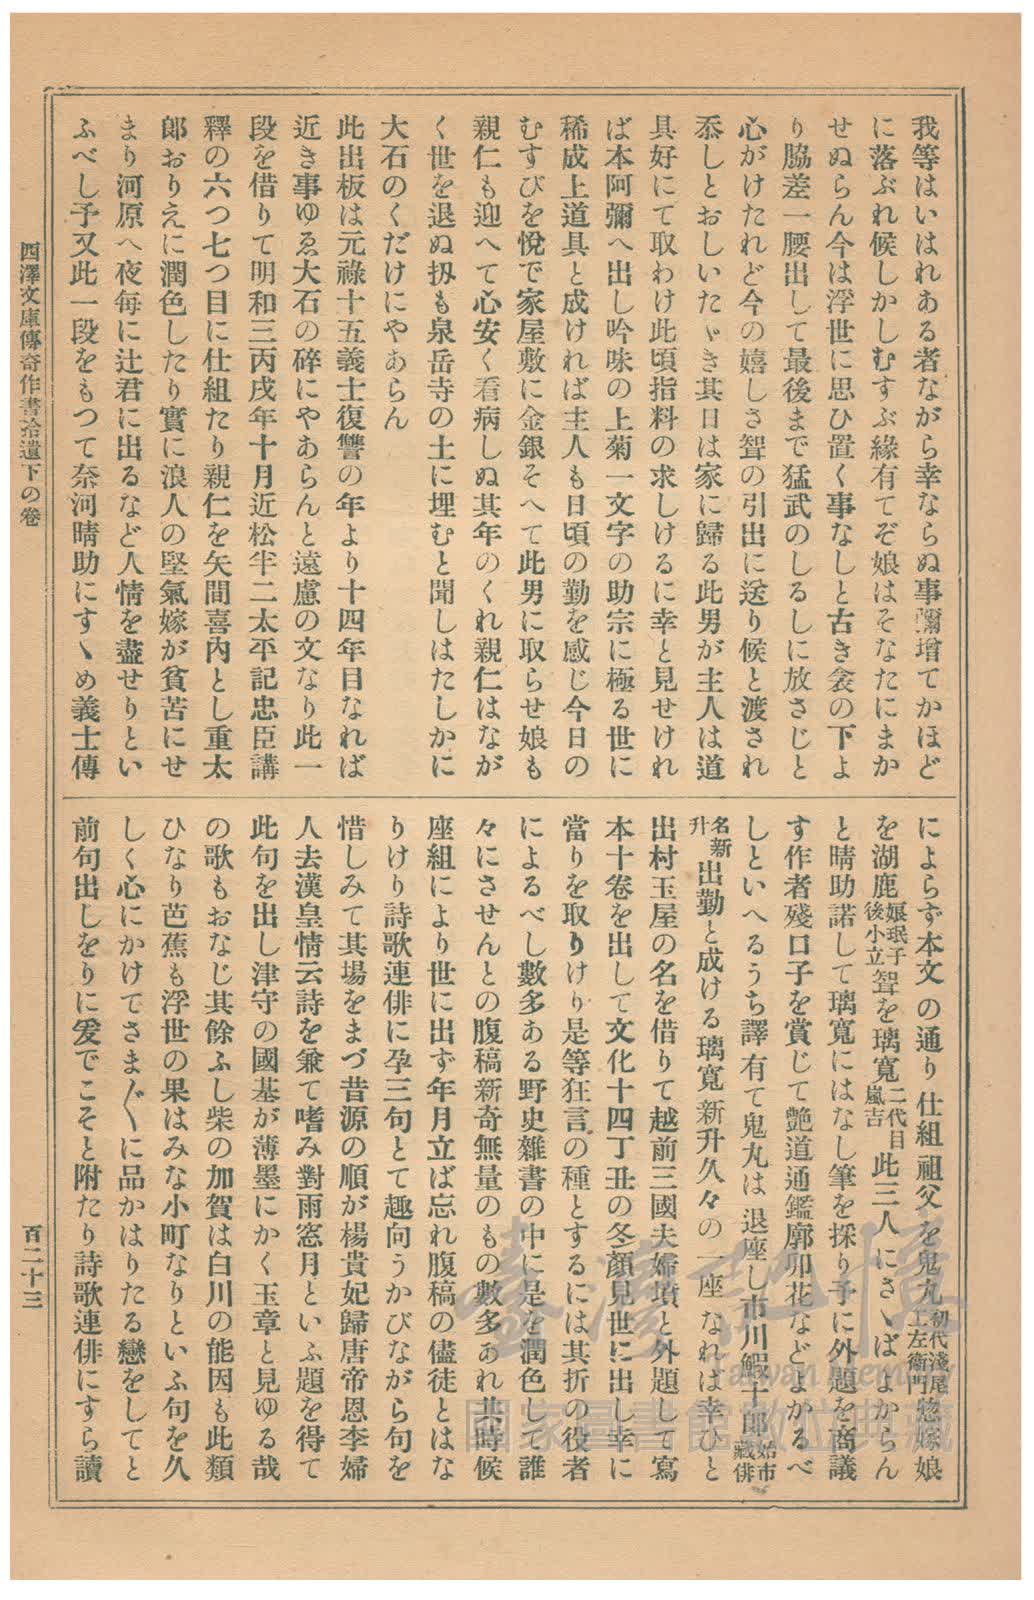 我等はいはれある者ながら幸ならぬ事彌增てかほど
に落ぶれ候しかしむすぶ緣有てぞ娘はそなたにまか
せぬらん今は浮世に思ひ置く事なしと古き衾の下よ
り脇差一腰出して最後まで猛武のしるしに放さじと
心がけたれど今の嬉しさ聟の引出に送り候と渡され
忝しとおしいたゞき其日は家に歸る此男が主人は道
具好にて取わけ此頃指料の求しけるに幸と見せけれ
ば本阿彌へ出し吟味の上菊一文字の助宗に極る世に
稀成上道具と成ければ主人も日頃の勤を感じ今日の
むすびを悅で家屋敷に金銀そへて此男に取らせ娘も
親仁も迎へて心安く看病しぬ其年のくれ親仁はなが
く世を退ぬ扨も泉岳寺の土に埋むと聞しはたしかに
大石のくだけにやあらん
此出板は元祿十五義士復讐の年より十四年目なれば
近き事ゆゑ大石の碎にやあらんと遠慮の文なり此一
段を借りて明和三丙戌年十月近松半二太平記忠臣講
釋の六つ七つ目に仕組たり親仁を矢間喜內とし重太
郎おりえに潤色したり實に浪人の堅氣嫁が貧苦にせ
まり河原へ夜每に辻君に出るなど人情を盡せりとい
ふべし予又此一段をもつて奈河晴助にすゝめ義士傳
によらず本文の通り仕組祖父を鬼丸初代淺尾工左衞門惣嫁娘
を湖鹿娘珉子後小立聟を璃寬二代目嵐吉此三人にさゝばよからん
と晴助諾して璃寬にはなし筆を採り予に外題を商議
す作者殘口子を賞じて艶道通鑑廓卯花などよかるべ
しといへるうち譯有て鬼丸は退座し市川鰕十郎始市藏俳
名新升出勤と成ける璃寬新升久々の一座なれば幸ひと
出村玉屋の名を借りて越前三國夫婦墳と外題して寫
本十卷を出して文化十四丁丑の冬顏見世に出し幸に
當りを取りけり是等狂言の種とするには其折の役者
によるべし數多ある野史雜書の中に是を潤色して誰
々にさせんとの腹稿新奇無量のもの數多あれ共時候
座組により世に出ず年月立ば忘れ腹稿の儘徒とはな
りけり詩歌連俳に孕三句とて趣向うかびながら句を
惜しみて其場をまづ昔源の順が楊貴妃歸唐帝恩李婦
人去漢皇情云詩を兼て嗜み對雨窓月といふ題を得て
此句を出し津守の國基が薄墨にかく玉章と見ゆる哉
の歌もおなじ其餘ふし柴の加賀は白川の能因も此類
ひなり芭蕉も浮世の果はみな小町なりといふ句を久
しく心にかけてさま〲に品かはりたる戀をしてと
前句出しをりに爰でこそと附たり詩歌連俳にすら讀
四澤文庫傳奇作書拾遺下の卷
百二十三
臺灣記憶
Taiwan Memory
國家圖書館數位典藏